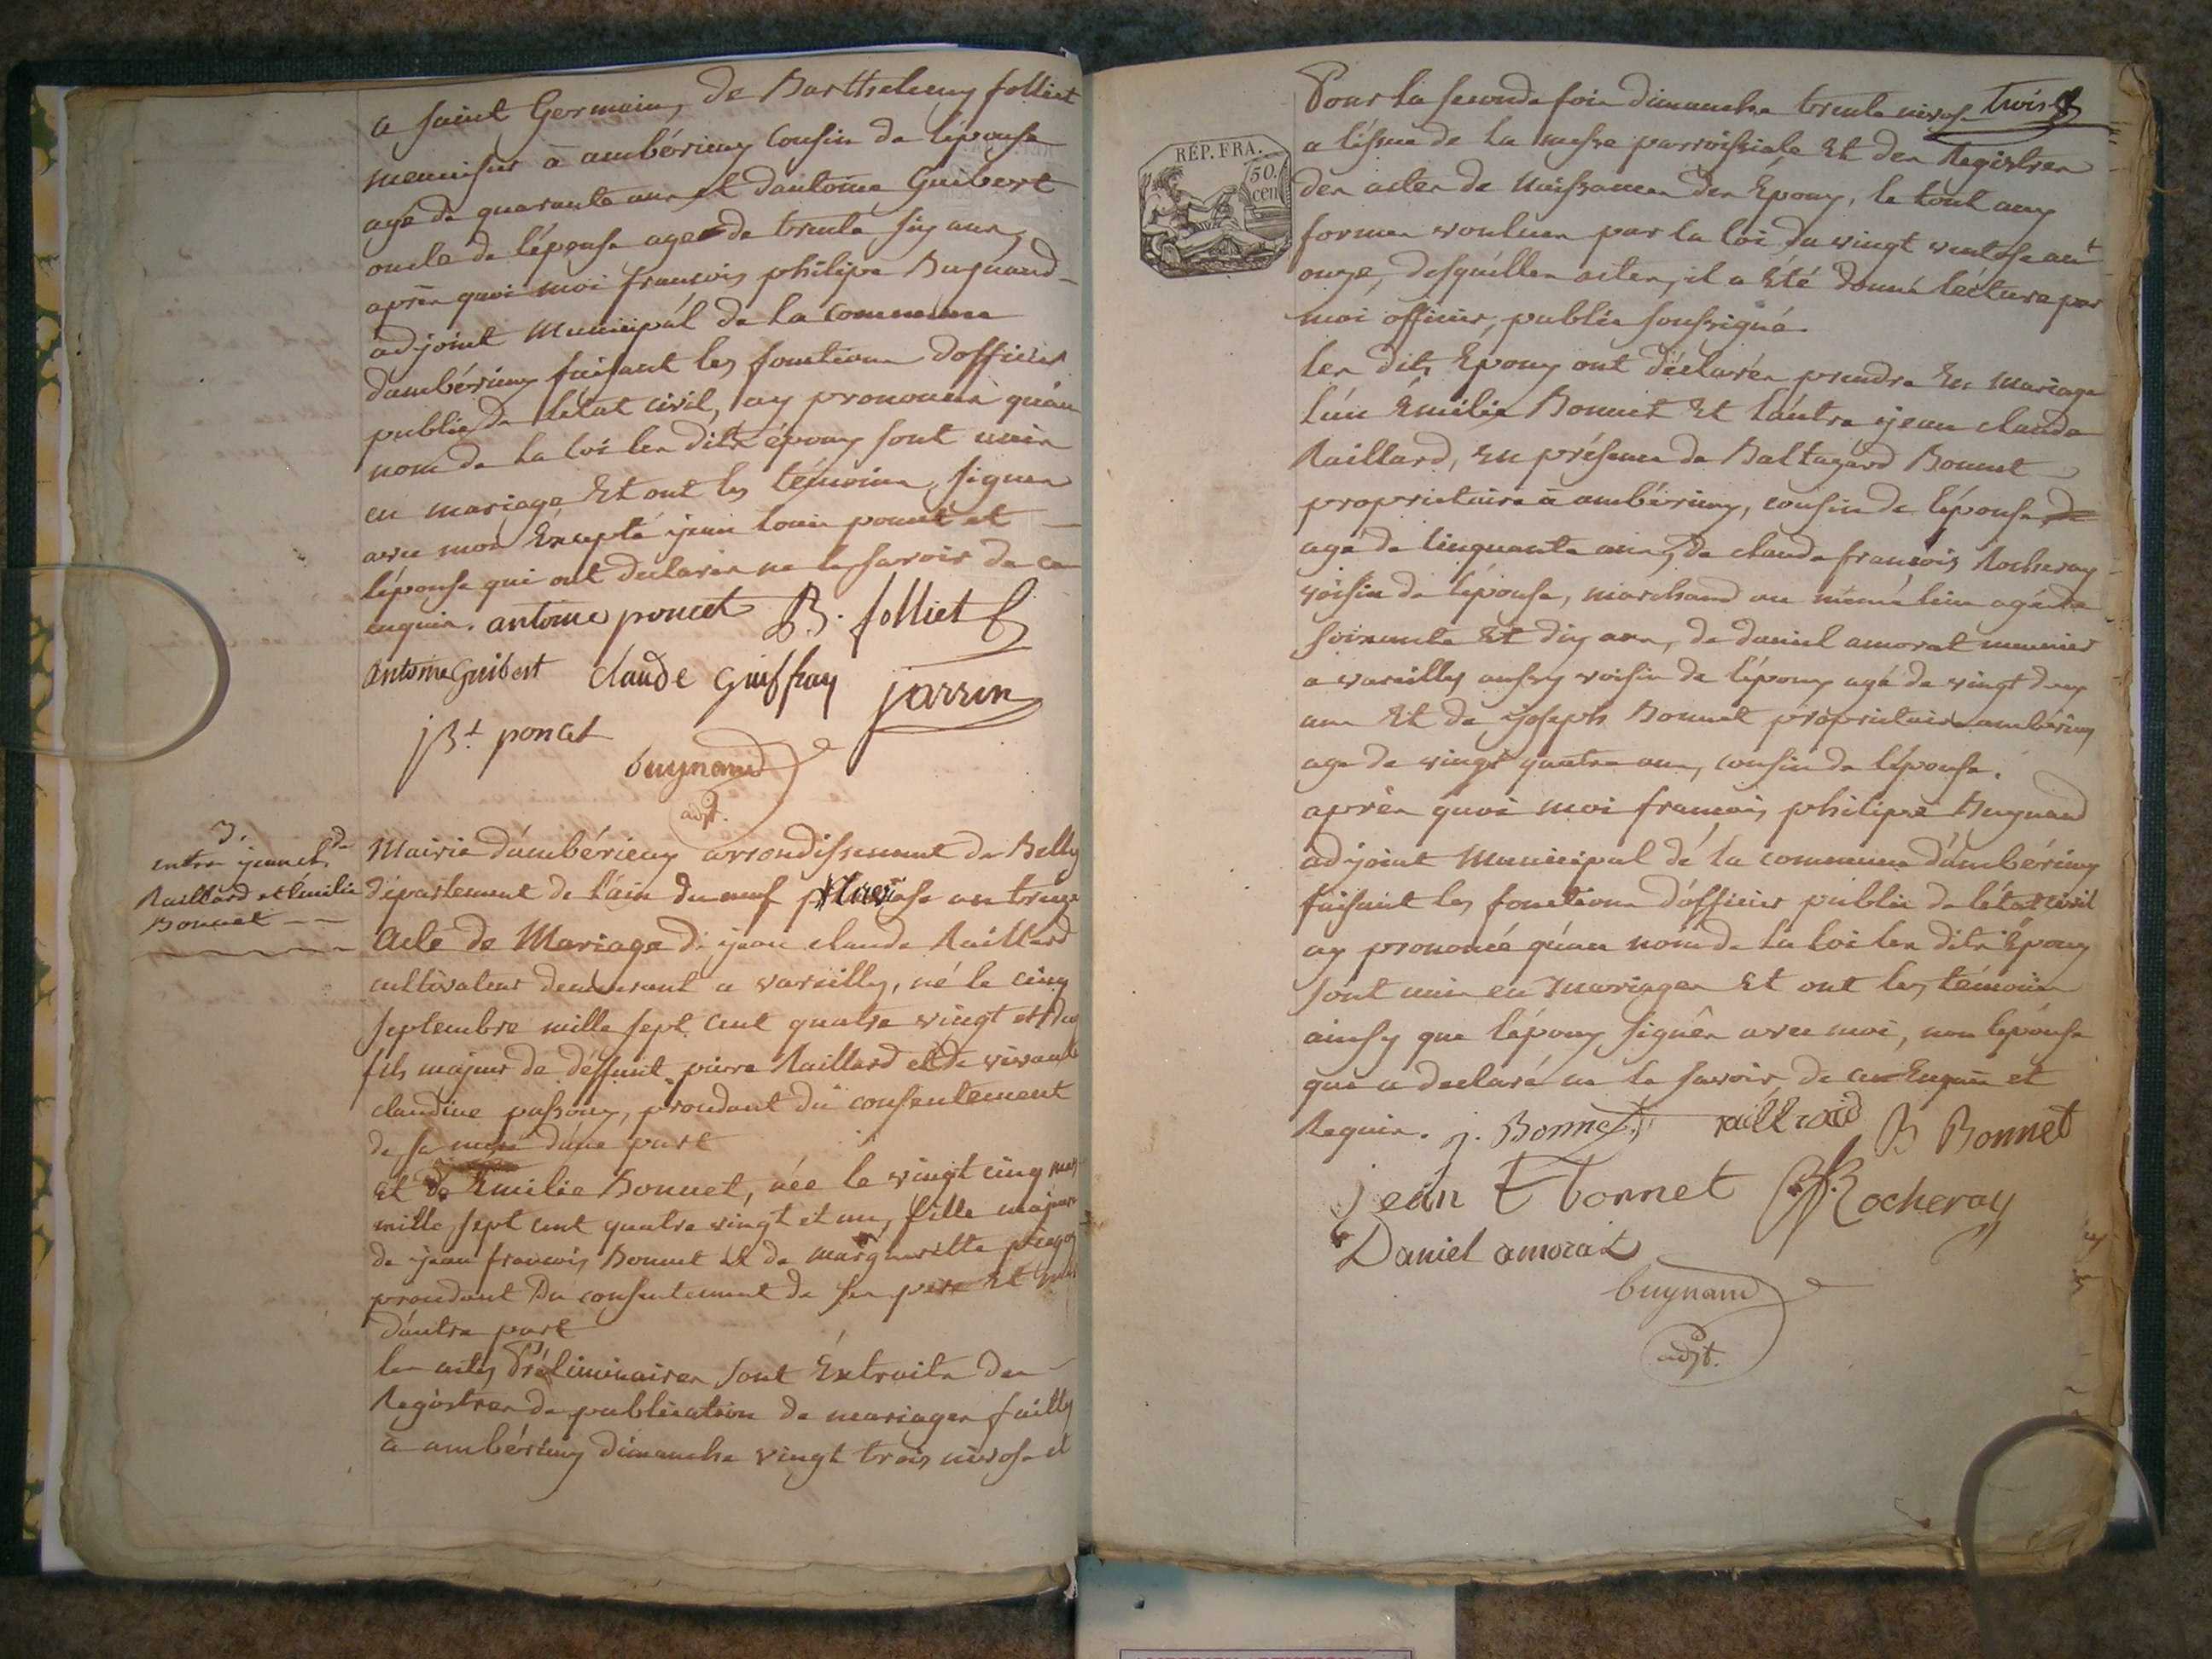 a saint Germain, de Barthelemy folliet
menuisier a ambérieux cousin de lépouse
agé de quarante ans et dantoine Guibert
oncle de lépouse agé de trente six ans,
après quoi moi francois philipe Buynand
adjoint municipal de la commune
dambérieux faisant les fonctions dofficier
public de létat civil, ay prononcé qu'au
nom de la loi les dits époux sont unis
en mariage Et ont les témoins signés
avec moi Excepté jean louis poncet et
lépouse qui ont declarés ne le savoir de ce
enquis. antoine poncet B. folliet
antoine Guibert claude Guiffray jarrin
jBt poncet
buynand
adjt.
3.
entre jean cl.de
Raillard et Emilie
Bonnet
Mairie d'ambérieux arrondissement de Belley
département de l'ain du neuf pluviose an treize
Acte de Mariage de jean claude Raillard
cultivateur demeurant a vareilly, né le cinq
septembre mille sept cent quatre vingt et
fils majeur de déffunt pierre Raillard et de vivante
claudine , procédant du consentement
de sa mere d'une part
Et de Emilie Bonnet, née le vingt cinq
mille sept cent quatre vingt et un, fille majeure
de jean francois Bonnet et de margueritte
procédant Du consentement de ses pere Et mere
d'autre part
les actes Préliminaires sont Extraits des
Registres de publication de mariages faittes
a ambérieux dimanche vingt trois nivose et
trois
RÉP. FRA.
50.
cen
Pour la seconde fois dimanche trente nivose
a lissue de la messe parroissiale Et des Registres
des actes de Naissances des Epoux, le tout aux
formes voulues par la loi du vingt ventose an
onze, desquelles actes, il a été donné lécture par
moi officier, public soussigné.
les dits Epoux ont déclarés prendre En mariage
l'un Emilie Bonnet Et l'autre jean claude
Raillard, En présence de Baltazard Bonnet
propriétaire à ambérieux, cousin de lépouse
agé de cinquante ans, de claude francois Rocheray
voisin de lépouse, marchand au même lieu agé de
soixante Et dix ans, de daniel amorat meunier
a vareilly aussy voisin de lépoux agé de vingt deux
ans Et de joseph Bonnet propriétaire ambérieux
age de vingt quatre ans, cousin de lépouse.
après quoi moi francois philipe Buynand
adjoint Municipal de la commune d'ambérieux
faisant les fonctions d'officier public de létat civil
ay prononcé qu'au nom de la loi les dits Epoux
sont unis en mariages Et ont les témoins
ainsy que lépoux signés avec moi, non lepouse
qui a declaré ne le savoir de ce Enquis et
Requis. j. Bonnet raillard B Bonnet
jean bonnet Rocheray
Daniel amorat
buynand
adjt.